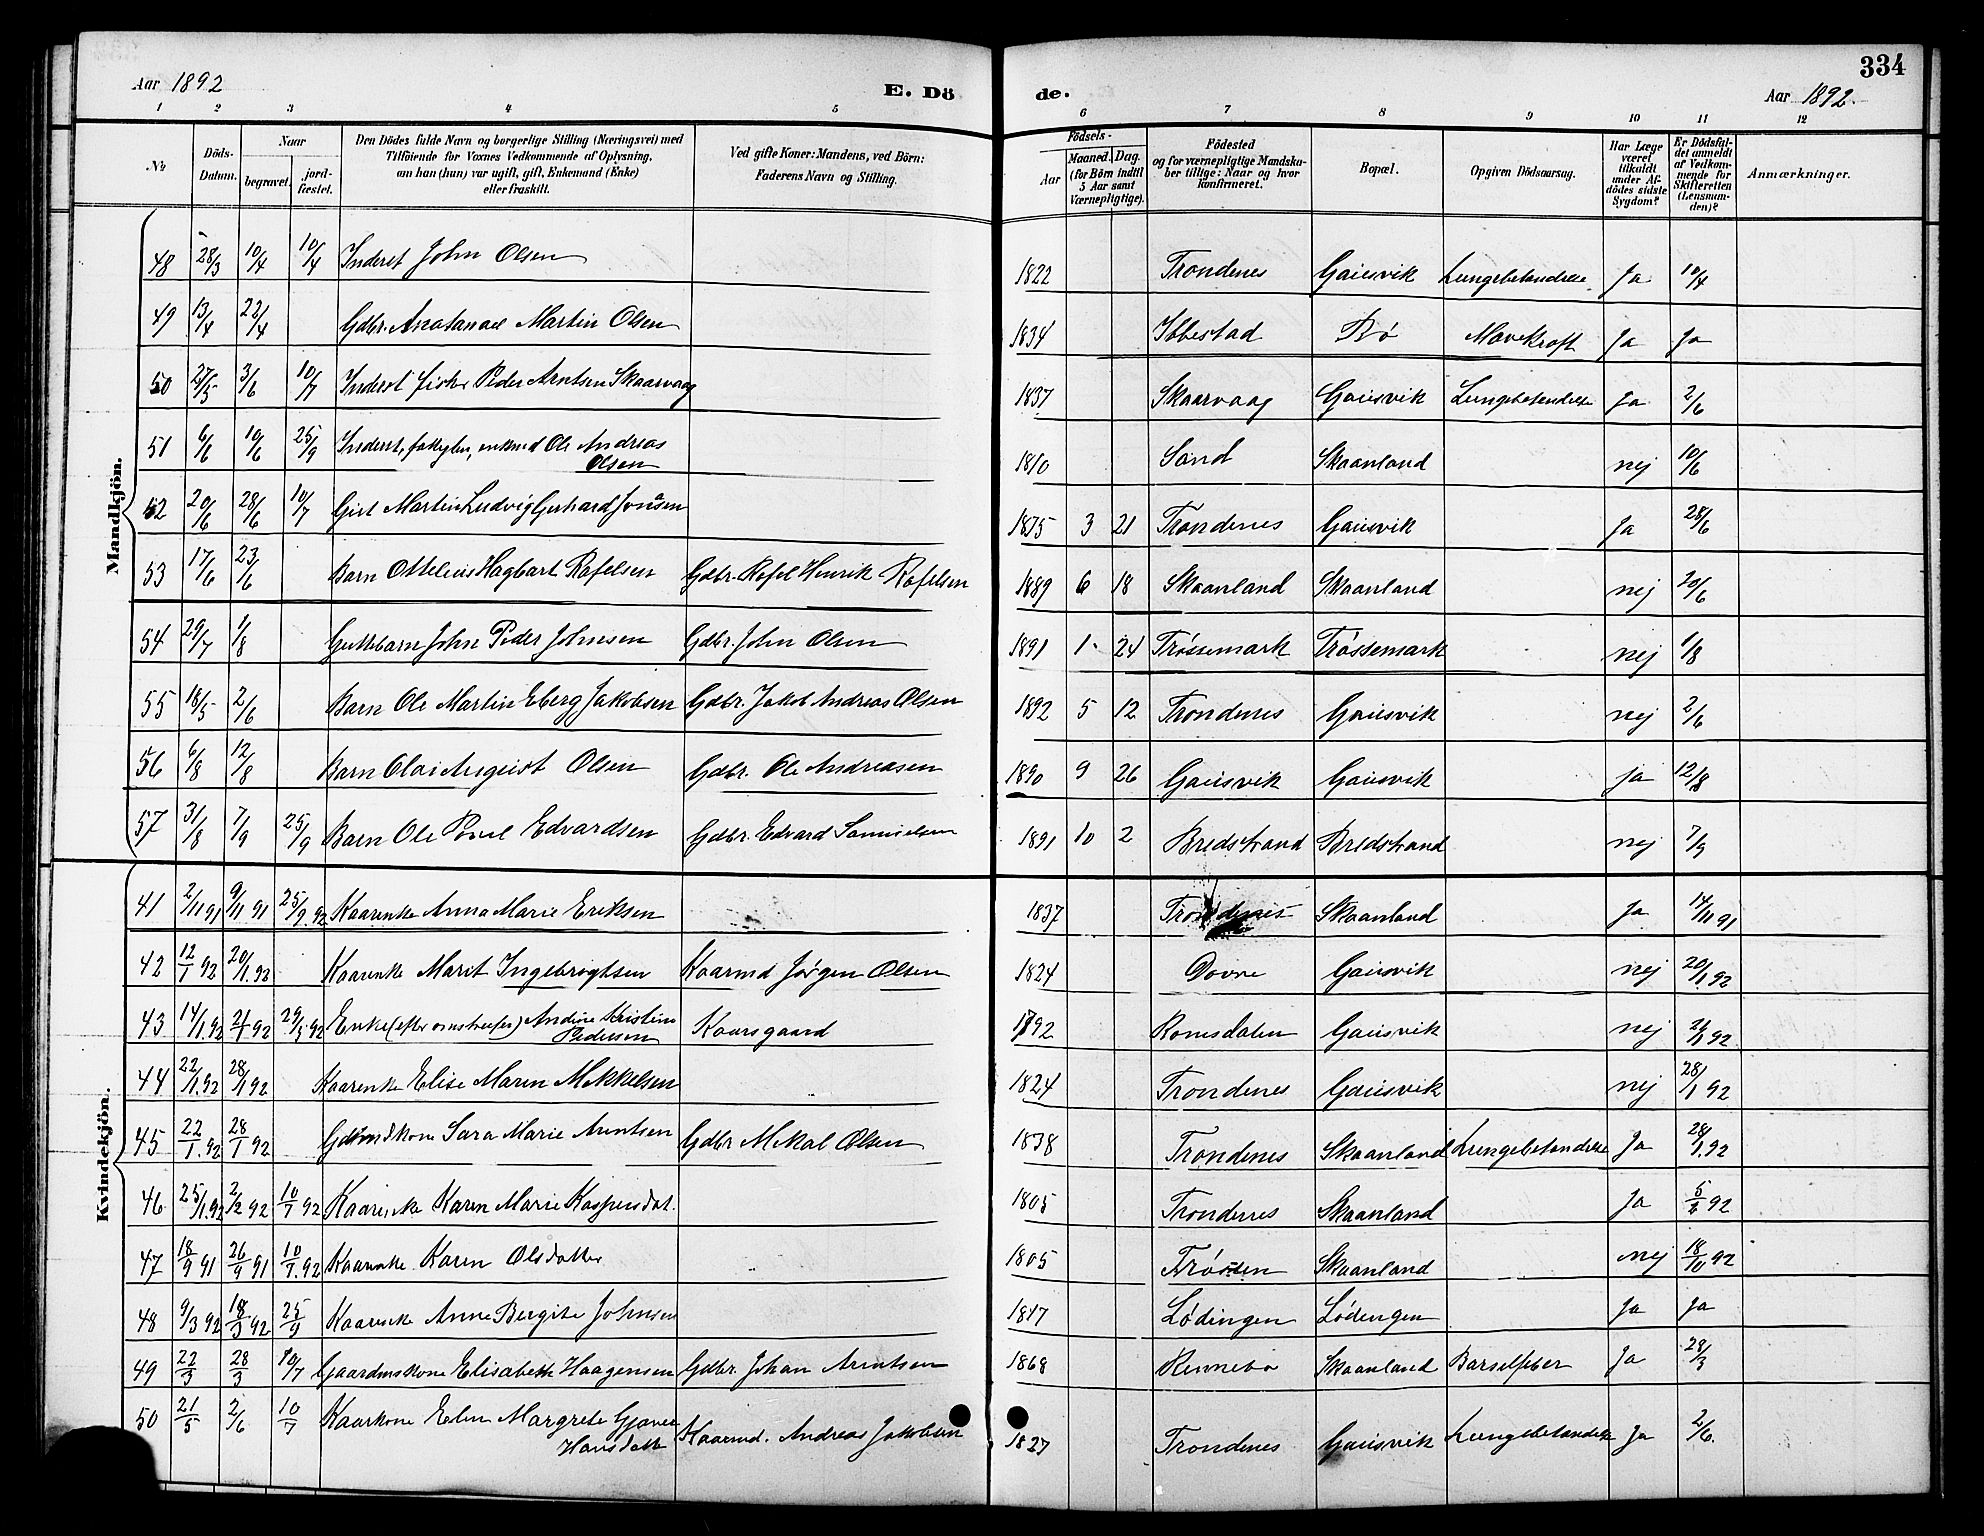 334
Aar 1892 E. Dö de. Aar 1892.
1 2 3 4 5 6 7 8 9 10 11 12
Nr. Döds-Datum. Naar begravet. jord-fæstet. Den Dödes fulde Navn og borgerlige Stilling (Næringsvei) med Tilföiende for Voxnes Vedkommende af Oplysning, om han (hun) var ugift, gift, Enkemand (Enke) eller fraskilt. Ved gifte Koner: Mandens, ved Börn: Faderens Navn og Stilling. Födsels- Aar Maaned. Dag. (for Börn indtil 5 Aar samt Værnepligtige). Födested og for værnepligtige Mandskaber tillige: Naar og hvor konfirmeret. Bopæl. Opgiven Dödsaarsag. Har Læge været tilkaldt under Afdödes sidste Sygdom? Er Dödsfaldet anmeldt af Vedkommende for Skifteretten (Lensmanden)? Anmærkninger.
Mandkjön.
48 28/3 10/4 10/4 Inderst John Olsen 1822 Trondenes Gausvik Lungebetændelse Ja 10/4
49 13/4 22/4 Gdbr. Martin Olsen 1834 Ibbestad Bø Mavekræft Ja Ja
50 27/5 3/6 10/7 Inderst fisker Peder Arntsen Skaarvaag 1837 Skaarvaag Gausvik Lungebetændelse Ja 2/6
51 6/6 10/6 25/9 Inderst, enkmd Ole Andreas Olsen 1810 Sand Skaanland nej 10/6
52 20/6 28/6 10/7 Martin Ludvig Gerhard Jonasen 1875 3 21 Trondenes Gausvik Ja 28/6
53 17/6 23/6 Barn Ottelius Hagbart Rafelsen Gdbr. Rafel Henrik Rafelsen 1889 6 18 Skaanland Skaanland nej 20/6
54 29/7 1/8 Guttebarn John Peder Johnsen Gdbr. John Olsen 1891 1 24 Trøssemark Trøssemark nej 1/8
55 18/5 2/6 Barn Ole Martin Eberg Jakobsen Gdbr. Jakob Andreas Olsen 1892 5 12 Trondenes Gausvik nej 2/6
56 6/8 12/8 Barn Olai Olsen Gdbr. Ole Andreasen 1890 9 26 Gausvik Gausvik ja 12/8
57 31/8 7/9 25/9 Barn Ole Poul Edvardsen Gdbr. Edvard Samuelsen 1891 10 2 Bredstrand Bredstrand nej 7/9
Kvindekjön.
41 2/11 91 9/11 91 25/9. 92 Kaarenke Anna Marie Eriksen 1837 Trondenes Skaanland Ja 14/11 91
42 12/1 92 20/1. 92 Kaarenke Marit Ingebrigtsen Kaarmd Jørgen Olsen 1824 Dovre Gausvik nej 20/1 92
43 14/1. 92 21/1 92 29/5 92 Enke Andrine Kristine Pedersen Kaarsgaard 1792 Romsdalen Gausvik nej 21/1 92
44 22/1. 92 28/1 92 Kaarenke Elise Maren Mikkelsen 1824 Trondenes Gausvik nej 28/1 92
45 22/1. 92 28/1 92 Gdmdskone Sara Marie Arntsen Gdbr Mikal Olsen 1838 Trondenes Skaanland Lungebetændelse Ja 28/1. 92
46 25/1. 92 2/2 92 10/7 92 Kaarenke Karen Marie Kaspersdat. 1805 Trondenes Skaanland Ja 5/2 92
47 18/9 91 26/9 91 10/7. 92 Kaarenke Karen Olsdatter 1805 Trøssen Skaanland nej 18/10 92
48 9/3 92 18/3 92 25/9 Kaarenke Anne Bergite Johnsen 1817 Lødingen Lødingen Ja Ja
49 22/3 28/3 10/7 Gaardmskone Elisabeth Haagensen Gdbr. Johan Arntsen 1868 Rennebo Skaanland Barselfeber Ja 28/3
50 21/5 2/6 10/7 Kaarkone Elen Margrete Gjæver Hansdatt Kaarmd. Andreas Jakobsen 1827 Trondenes Gausvik Lungebetændelse Ja 2/6.